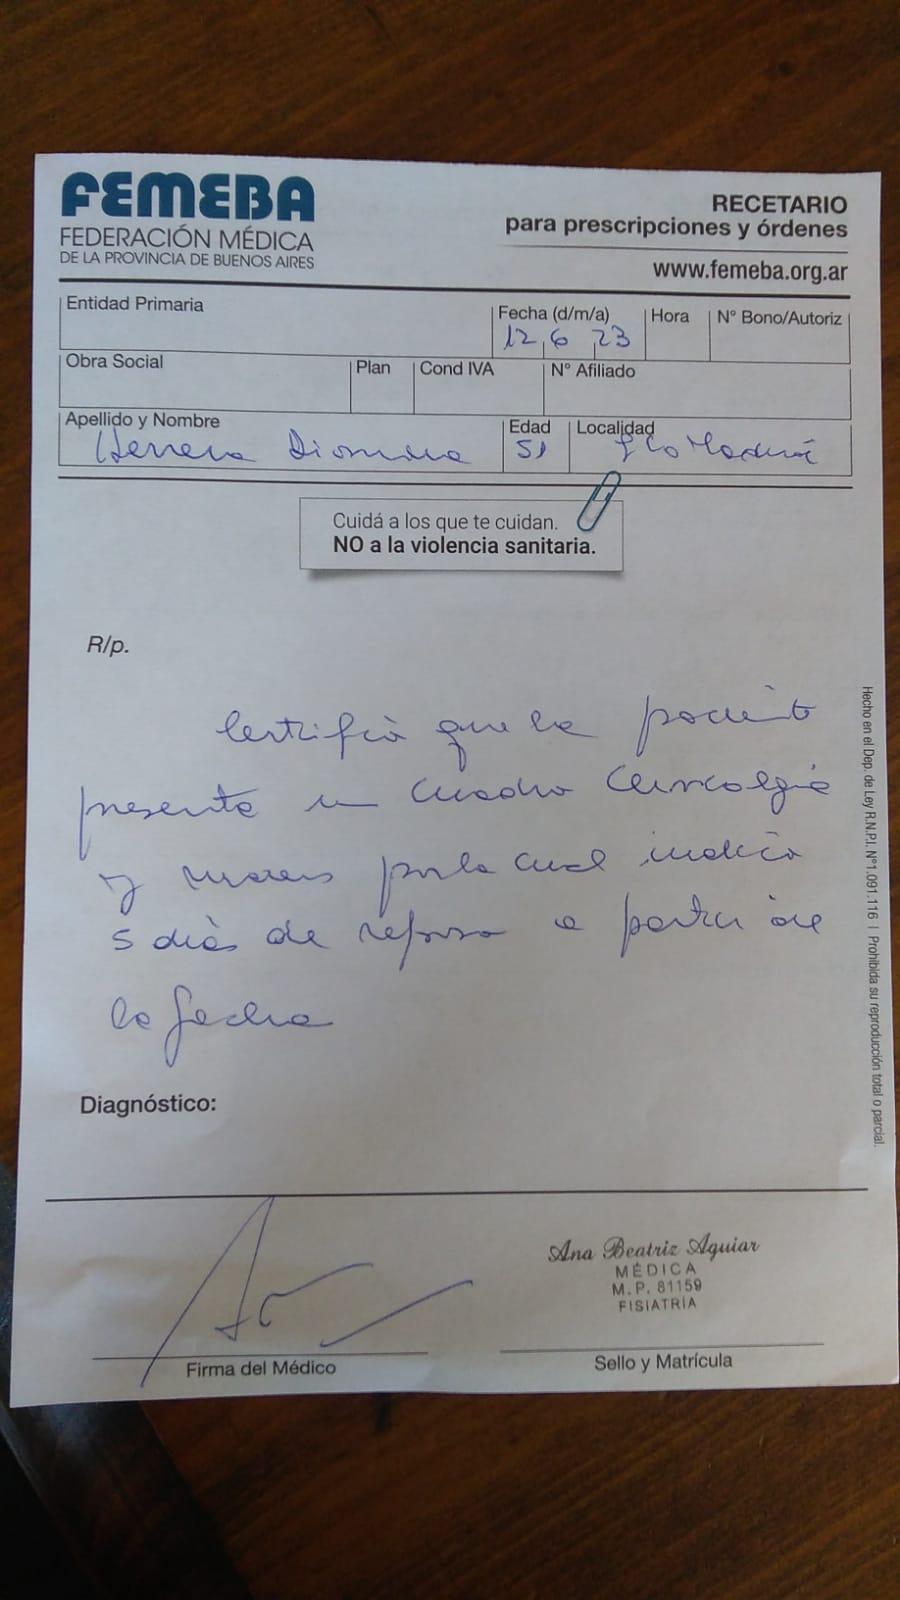 FEMEBA
FEDERACIÓN MÉDICA
DE LA PROVINCIA DE BUENOS AIRES
RECETARIO
para prescripciones y órdenes
www.femeba.org.ar
Entidad Primaria
Fecha (d/m/a)
12 6 23
Hora
N° Bono/Autoriz
Obra Social
Plan
Cond IVA
N° Afiliado
Apellido y Nombre
Herrera
Edad
51
Localidad
Cuidá a los que te cuidan.
NO a la violencia sanitaria.
R/p.
Certifico que la paciente
presenta un cuadro
y por lo cual indico
5 dias de reposo a partir de
la fecha
Diagnóstico:
Firma del Médico
Ana Beatriz Aguiar
MÉDICA
M.P. 81159
FISIATRÍA
Sello y Matrícula
Hecho en el Dep. de Ley R.N.P.I. N°1.091.116 | Prohibida su reproducción total o parcial.